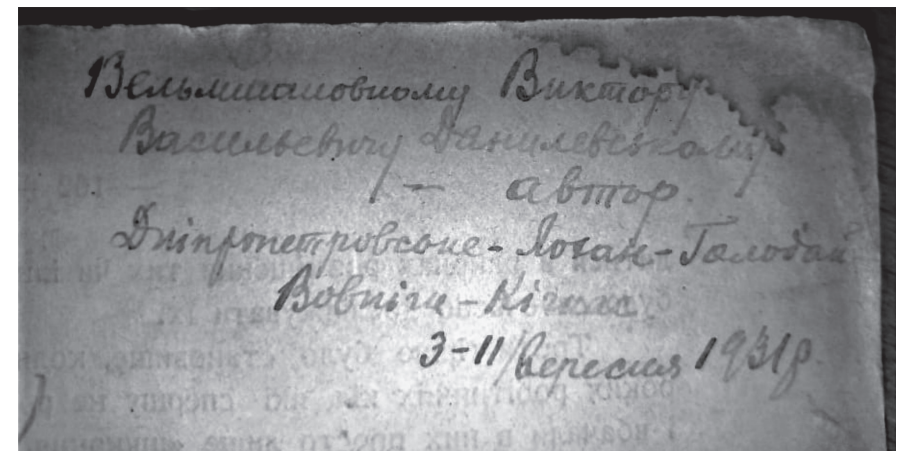 Вельмишановному Виктору
Васильевичу Данилевському
— автор.
Дніпропетровське-Лоцан-Галобай
Вовніги-Кічкас
3-11/Вересня 1931р